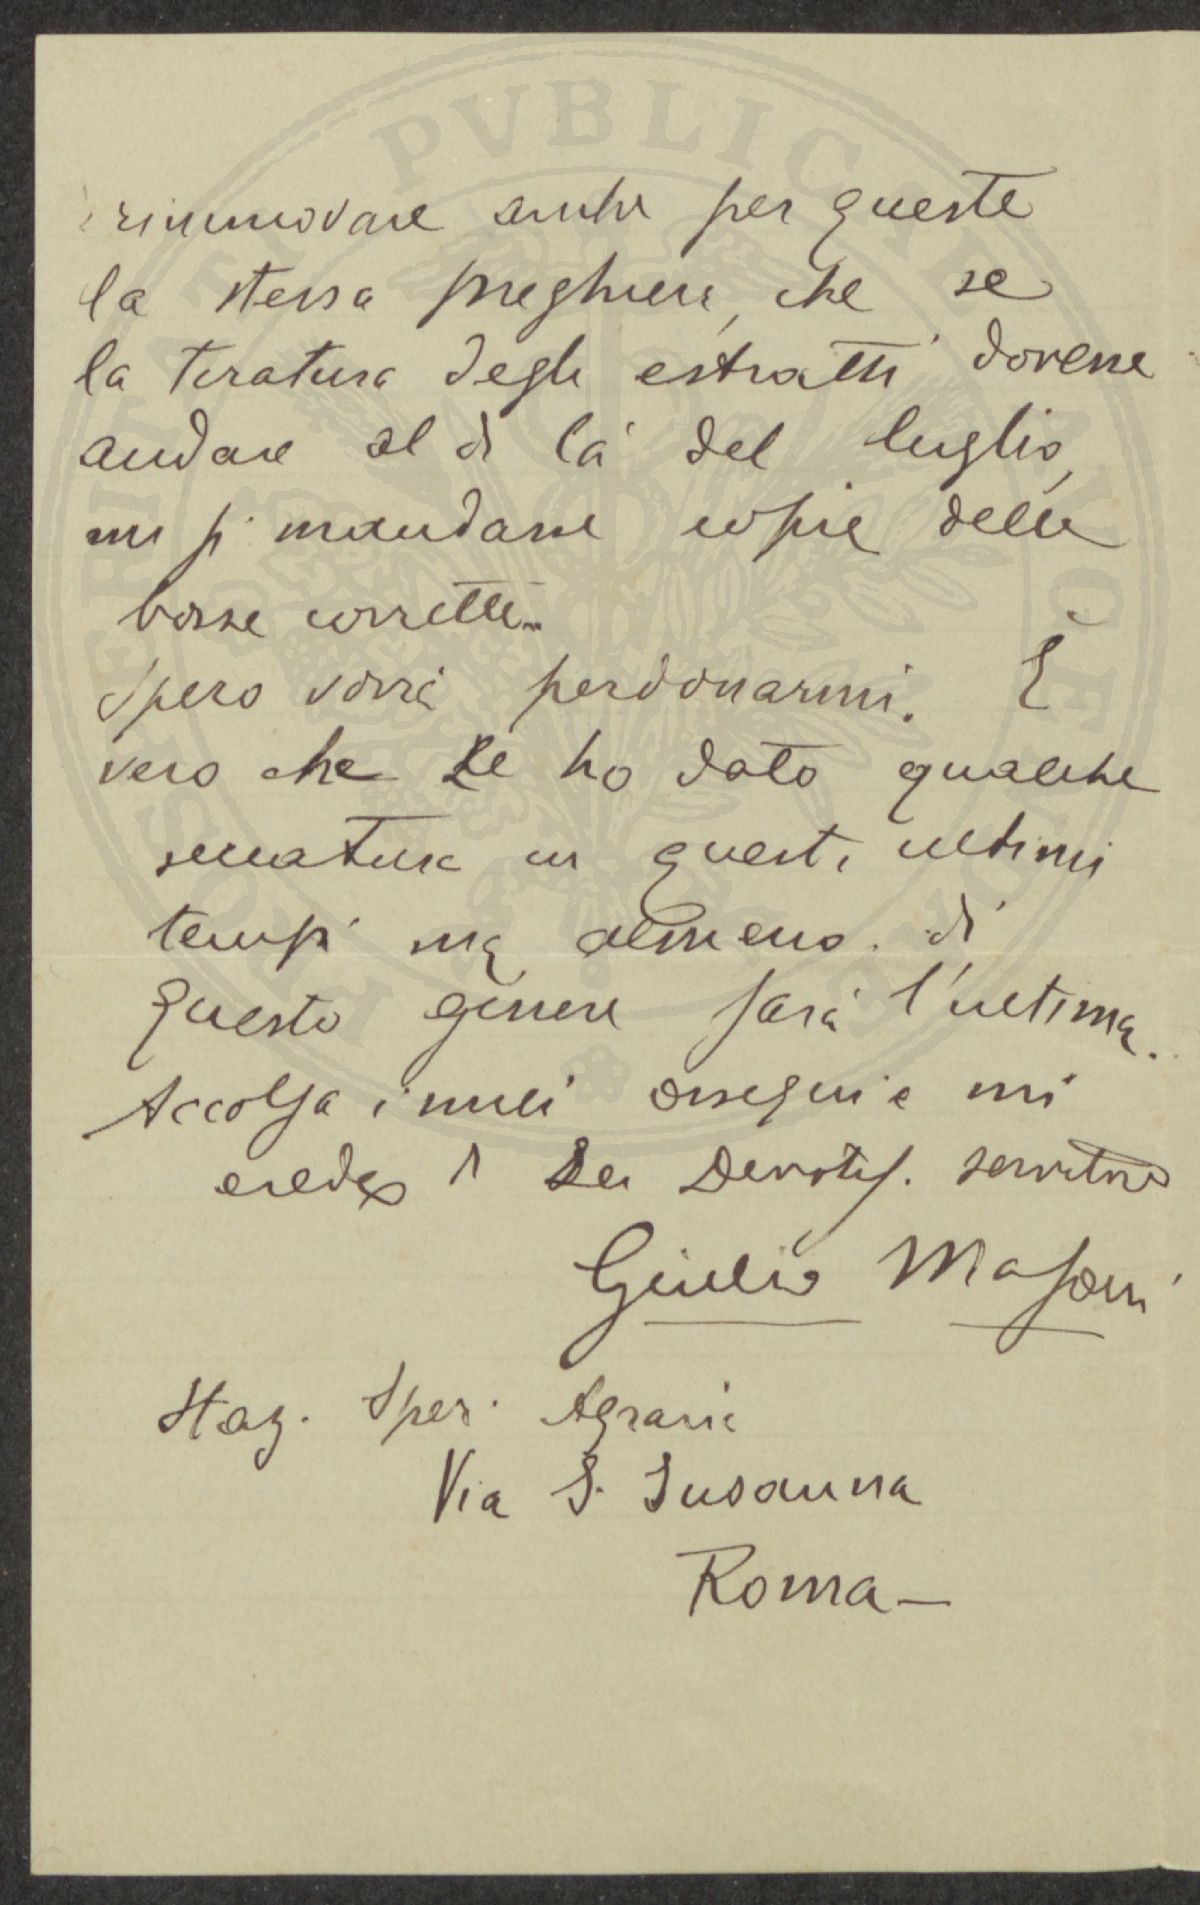 rinnovare anche per queste
la stessa preghiera, che se
la tiratura degli estratti dovesse
andare al di là del luglio,
mi si mandasse copie delle
bozze corrette.
Spero vorrà perdonarmi. È
vero che Le ho dato qualche
seccatura in questi ultimi
tempi ma almeno di
questo genere sarà l'ultima.
Accolga i miei ossequi e mi
creda di Lei Devotis. servitore
Giulio Masoni
Staz. Sper. Agraria
Via S. Susanna
Roma—